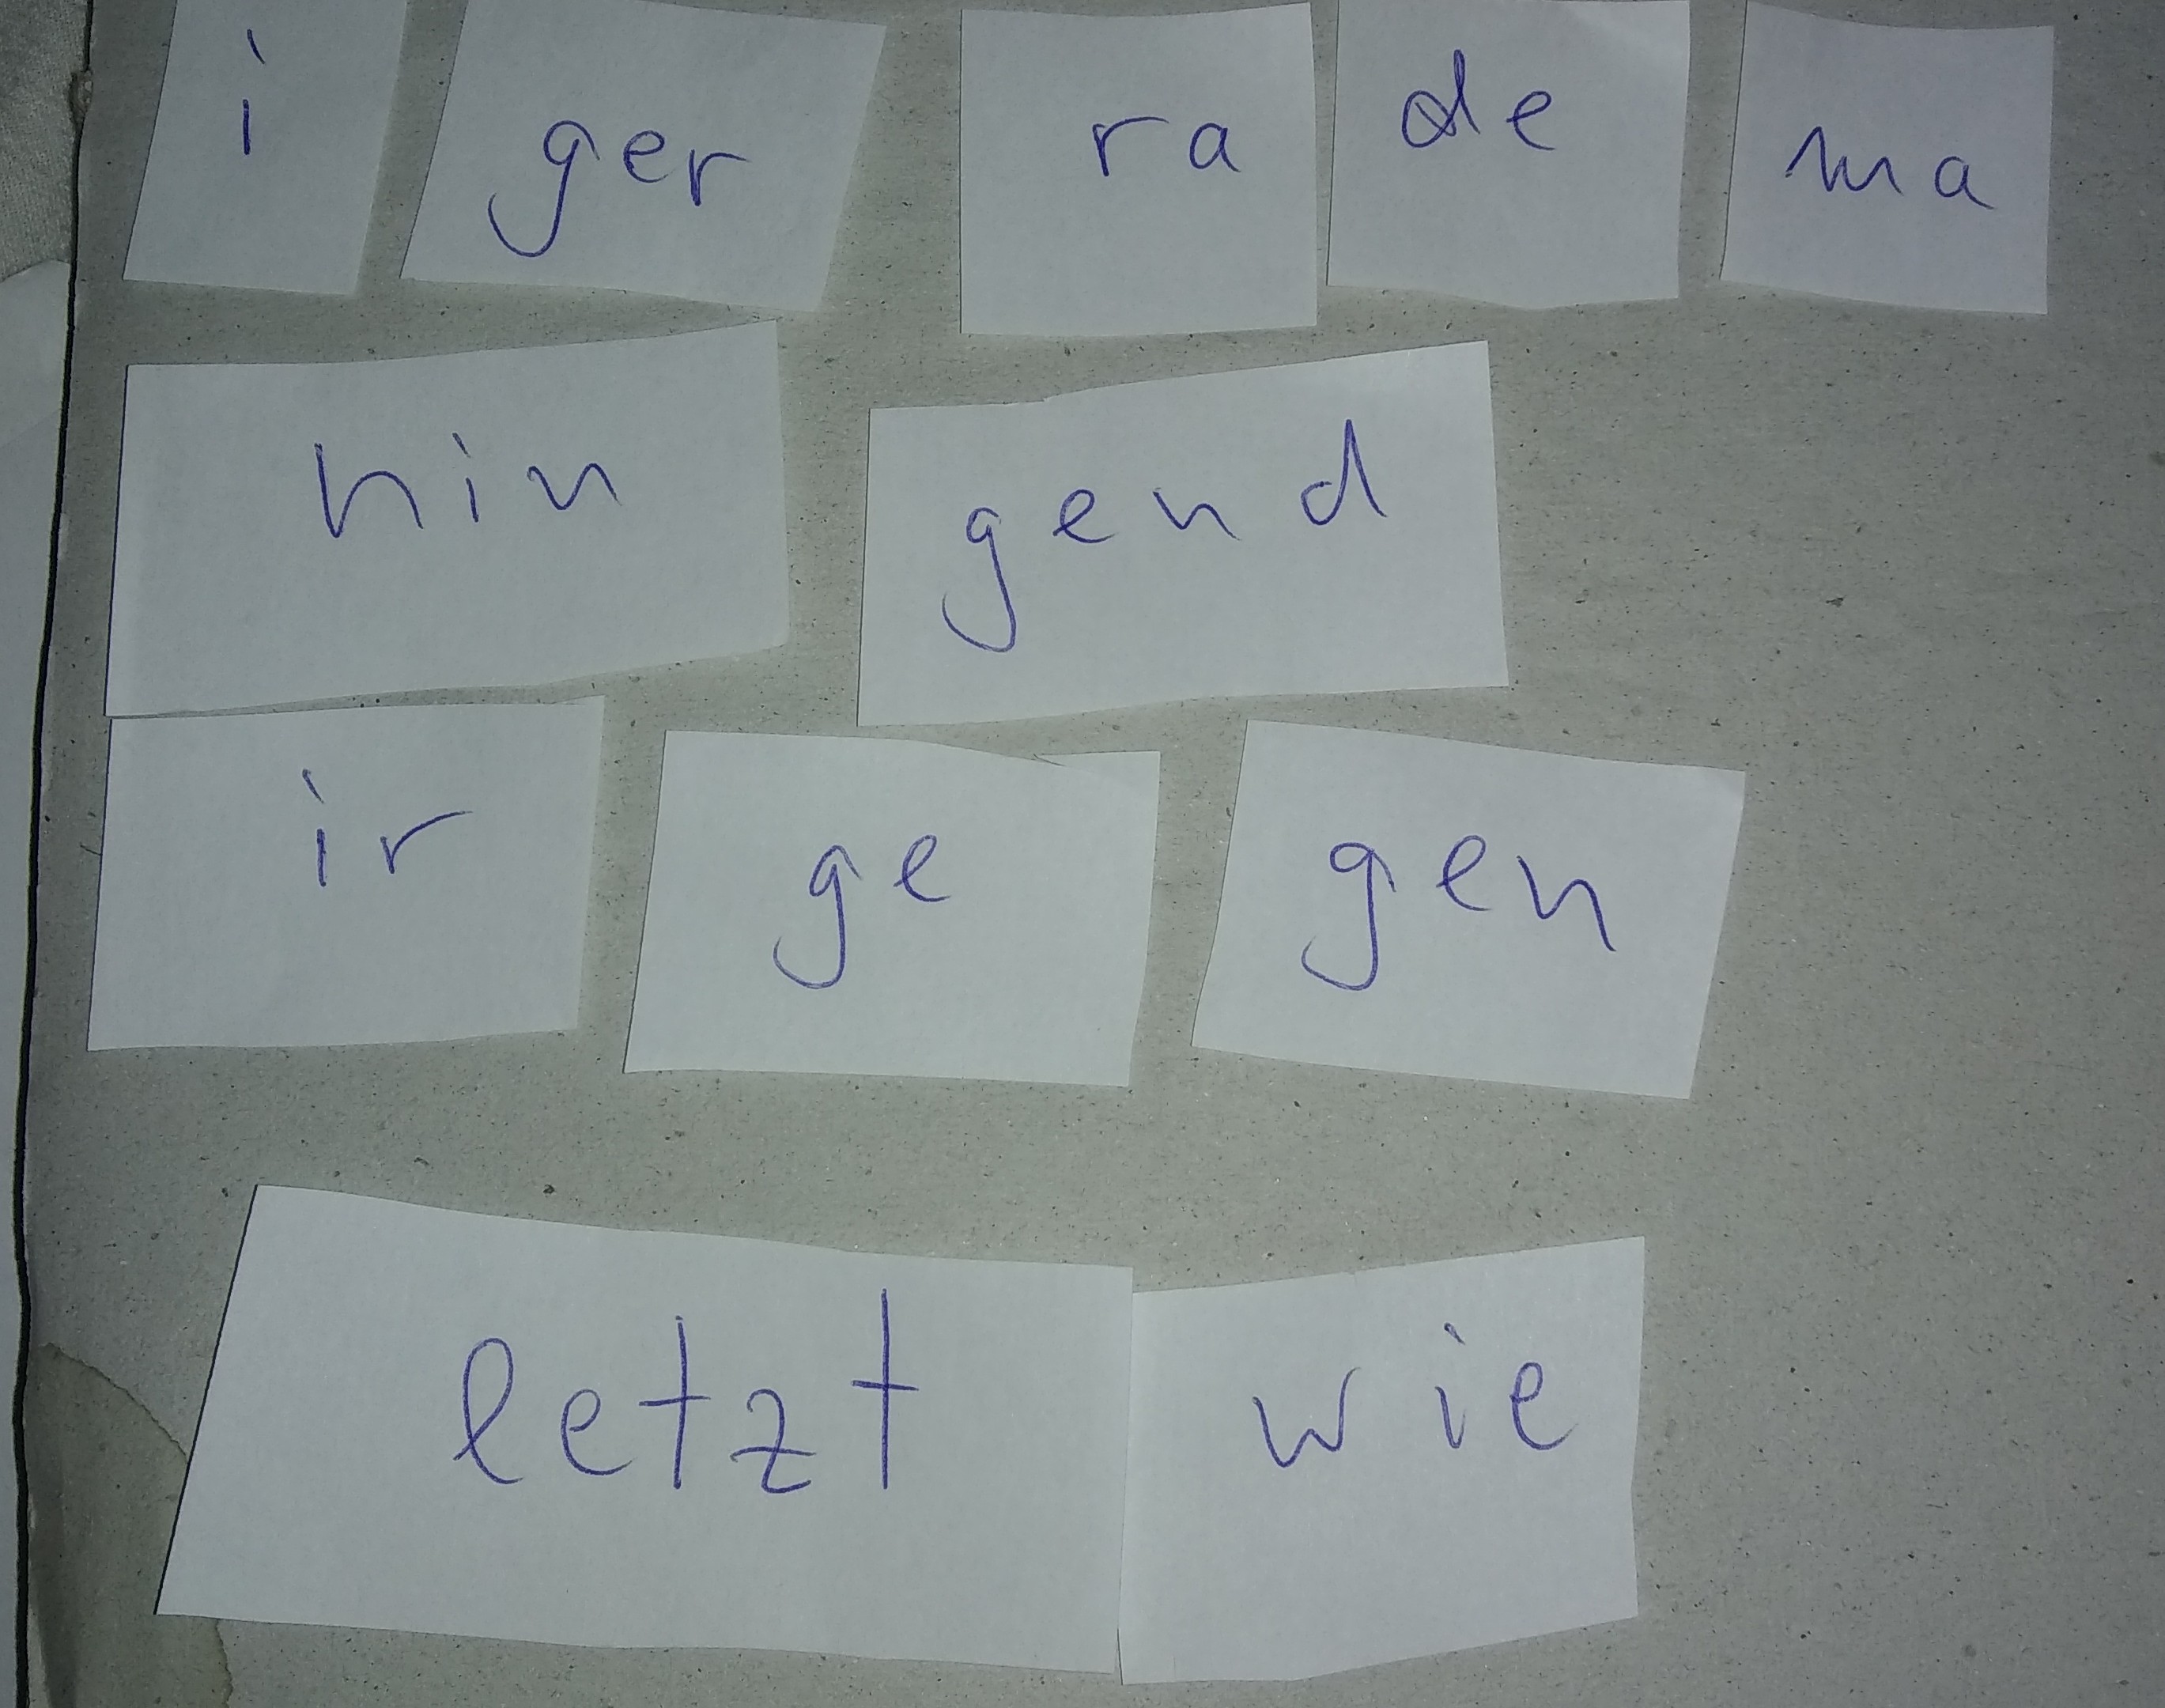 i ger ra de ma
hin gend
ir ge gen
letzt wie